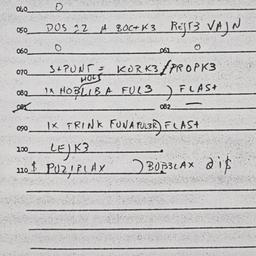 040. 0
050. DOS 22 A BOC+K3 REJT3 VAJN
060 0 061 0
070. S+PUNT = KORK3/PROPK3
HOLS
080. 1X HOB/LIBA FUL3 ) FLAS+
081 082 —
090. 1X TRINK FUNAPUL3R) FLAS+
100. LEJK3
110 $ PUZIPLAX ) BOB3LAX 2i$